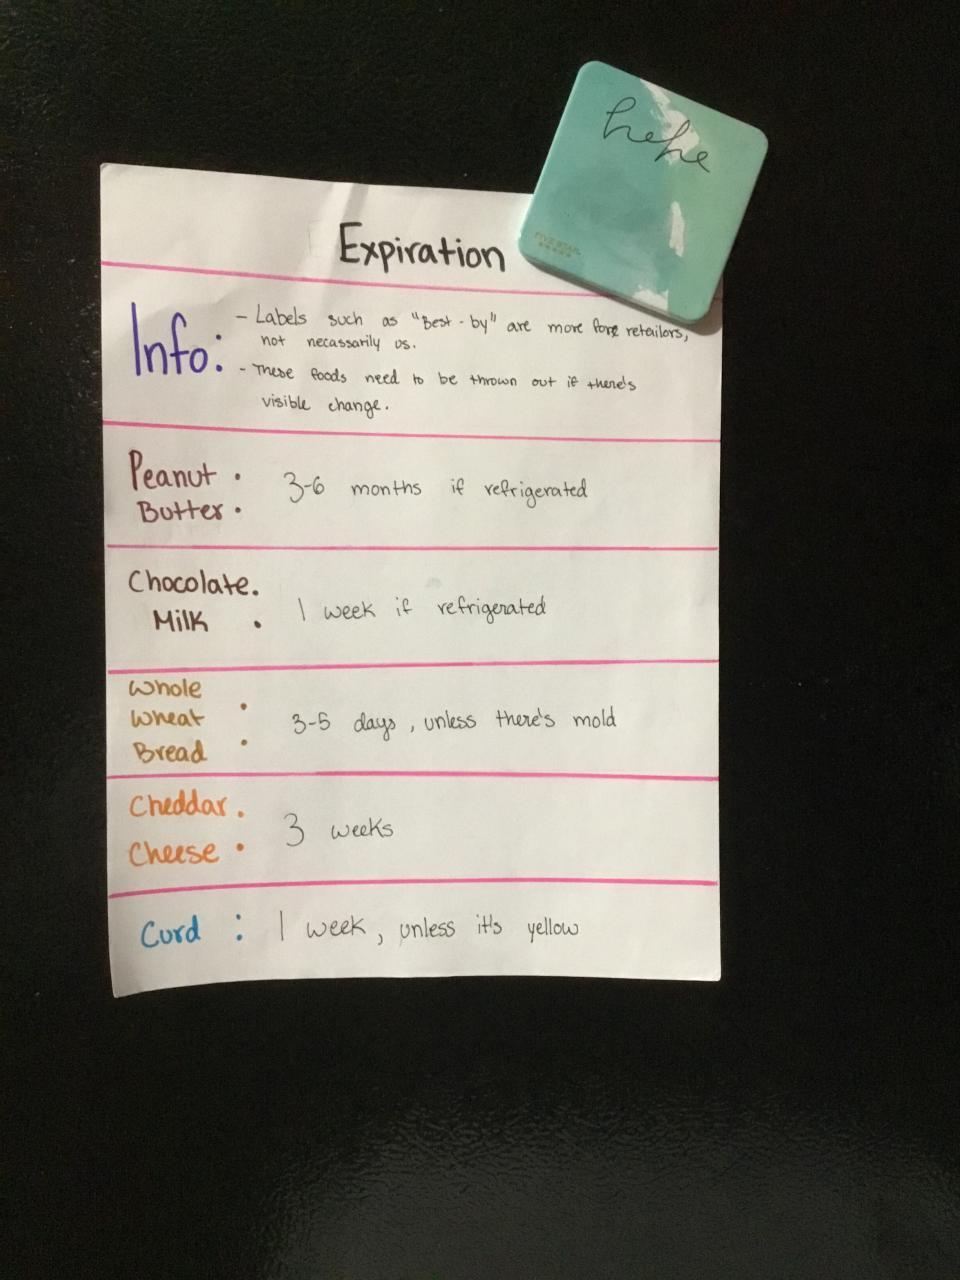 hehe
FIVE STAR
Expiration
Info:
- Labels such as "Best-by" are more fore retailors,
not necassarily us.
- These foods need to be thrown out if there's
visible change.
Peanut
Butter : 3-6 months if refrigerated
Chocolate
Milk : 1 week if refrigerated
Whole
Wheat
Bread : 3-5 days, unless there's mold
Cheddar
Cheese : 3 weeks
Curd : 1 week, unless it's yellow